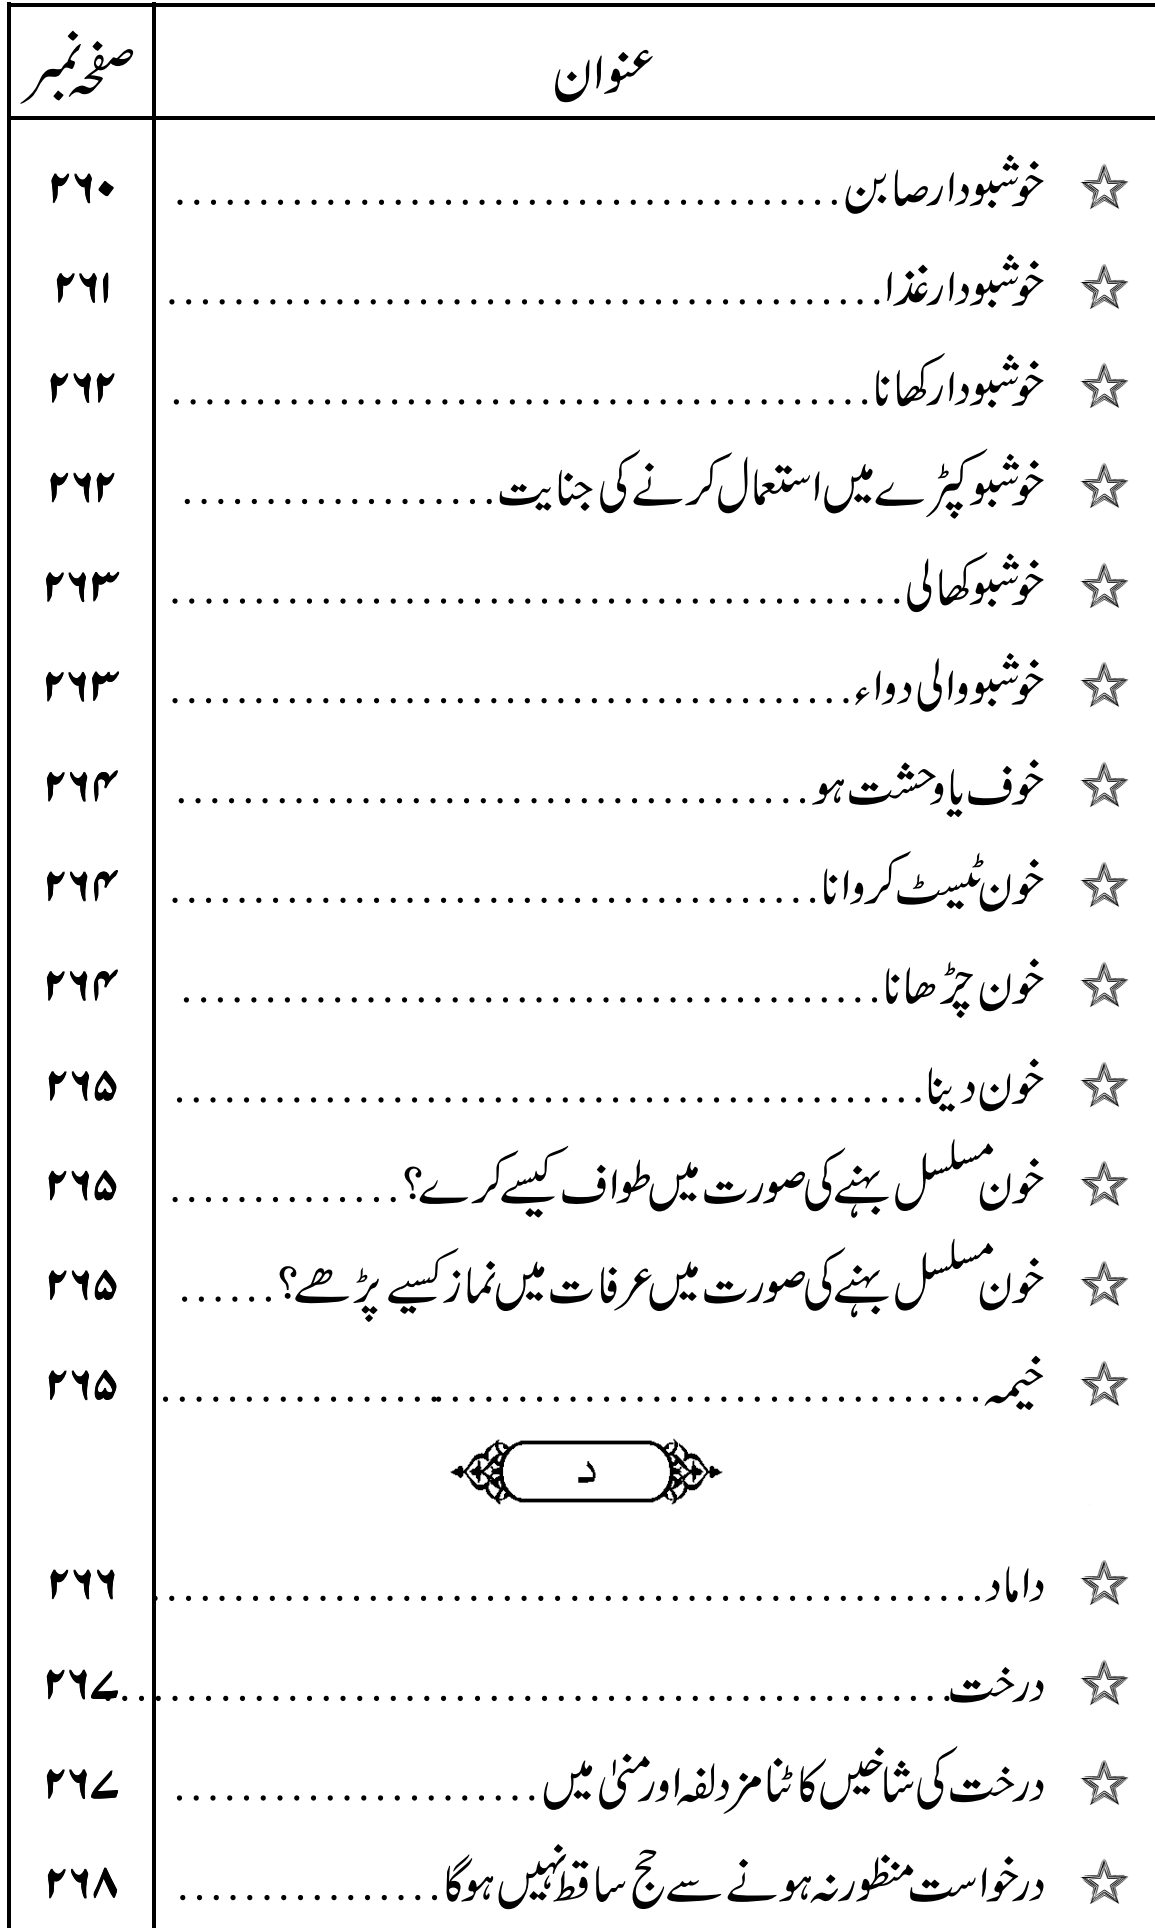 عنوان صفحہ نمبر
☆ خوشبودار صابن ........................................ ۲۶۰
☆ خوشبودار غذا ........................................... ۲۶۱
☆ خوشبودار کھانا .......................................... ۲۶۲
☆ خوشبو کپڑے میں استعمال کرنے کی جنایت ................... ۲۶۲
☆ خوشبو کھالی ............................................ ۲۶۳
☆ خوشبو والی دواء ......................................... ۲۶۳
☆ خوف یا وحشت ہو ....................................... ۲۶۴
☆ خون ٹیسٹ کروانا ....................................... ۲۶۴
☆ خون چڑھانا .......................................... ۲۶۴
☆ خون دینا ............................................. ۲۶۵
☆ خون مسلسل بہنے کی صورت میں طواف کیسے کرے؟ .............. ۲۶۵
☆ خون مسلسل بہنے کی صورت میں عرفات میں نماز کیسے پڑھے؟ ...... ۲۶۵
☆ خیمہ .................................................. ۲۶۵
د
☆ داماد .................................................. ۲۶۶
☆ درخت .................................................. ۲۶۷
☆ درخت کی شاخیں کاٹنا مزدلفہ اور منیٰ میں ...................... ۲۶۷
☆ درخواست منظور نہ ہونے سے حج ساقط نہیں ہوگا ................ ۲۶۸